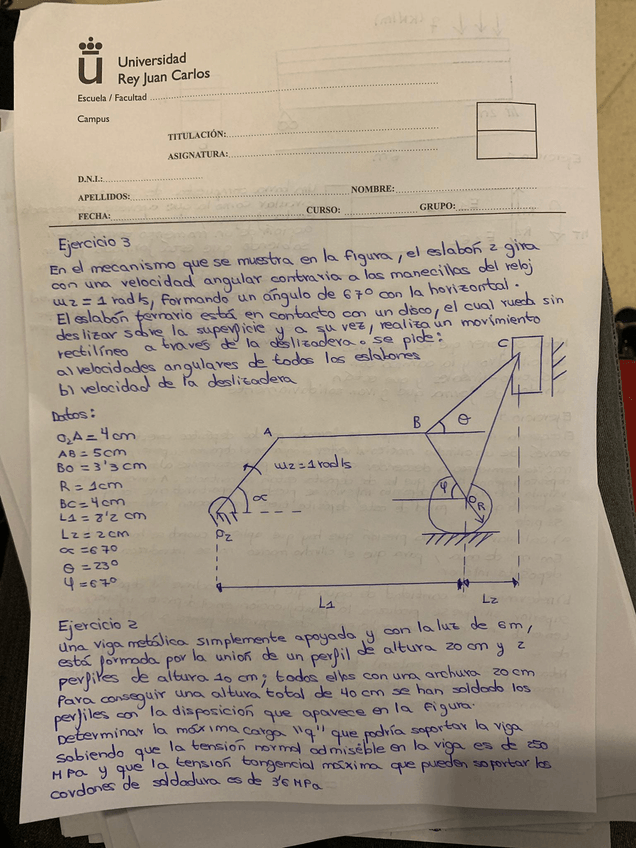 Universidad
Rey Juan Carlos
Escuela / Facultad
Campus
TITULACIÓN:
ASIGNATURA:
D.N.I.:
APELLIDOS: NOMBRE:
FECHA: CURSO: GRUPO:
Ejercicio 3
En el mecanismo que se muestra en la figura, el eslabón 2 gira
con una velocidad angular contraria a las manecillas del reloj
ω2 = 1 rad/s, formando un ángulo de 67º con la horizontal.
El eslabón ternario está en contacto con un disco, el cual rueda sin
deslizar sobre la superficie y a su vez, realiza un movimiento
rectilíneo a través de la deslizadera. Se pide:
a) velocidades angulares de todos los eslabones
b) velocidad de la deslizadera
Datos:
O2A = 4 cm
AB = 5cm
BO = 3'3 cm
R = 1cm
BC = 4cm
L1 = 8'2 cm
L2 = 2cm
α = 67º
θ = 23º
φ = 67º
C
B
θ
A
ω2 = 1 rad/s
α
φ
O
R
O2
L1
L2
Ejercicio 2
Una viga metálica simplemente apoyada y con la luz de 6m,
está formada por la union de un perfil de altura 20 cm y 2
perfiles de altura 10 cm; todos ellos con una anchura 20 cm
Para conseguir una altura total de 40 cm se han soldado los
perfiles con la disposición que aparece en la figura.
Determinar la máxima carga "q" que podría soportar la viga
sabiendo que la tensión normal admisible en la viga es de 250
MPa y que la tensión tangencial máxima que pueden soportar los
cordones de soldadura es de 3'6 MPa